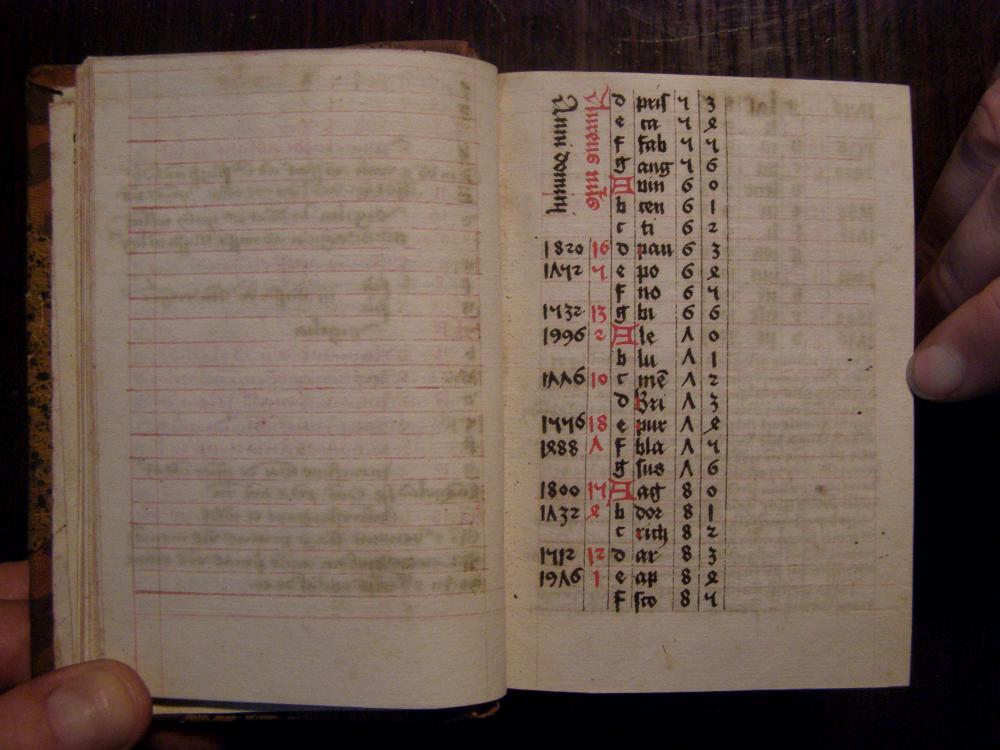 Anni dominy
Aureus nūs
d pris 5 3
e ca 5 4
f fab 5 5
g ang 5 6
A vin 6 0
b cen 6 1
c ti 6 2
1820 16 d pau 6 3
1752 5 e po 6 4
f no 6 5
1532 13 g bi 6 6
1996 2 A le 7 0
b lu 7 1
1776 10 c mē 7 2
d Bri 7 3
1556 18 e pur 7 4
1488 7 f bla 7 5
g sus 7 6
1800 15 A ag 8 0
1732 4 b dor 8 1
c rich 8 2
1512 12 d ar 8 3
1976 1 e ap 8 4
f sco 8 5